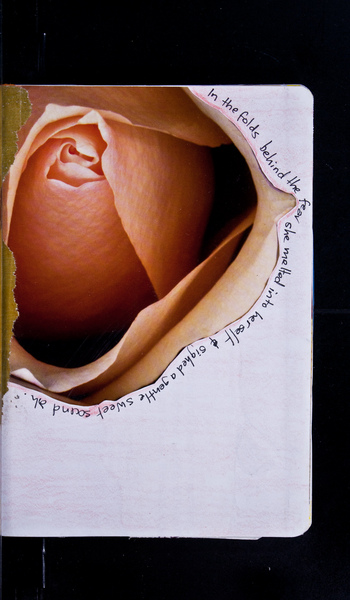 In the folds behind the fear she melted into herself & sighed a gentle sweet sound ah...